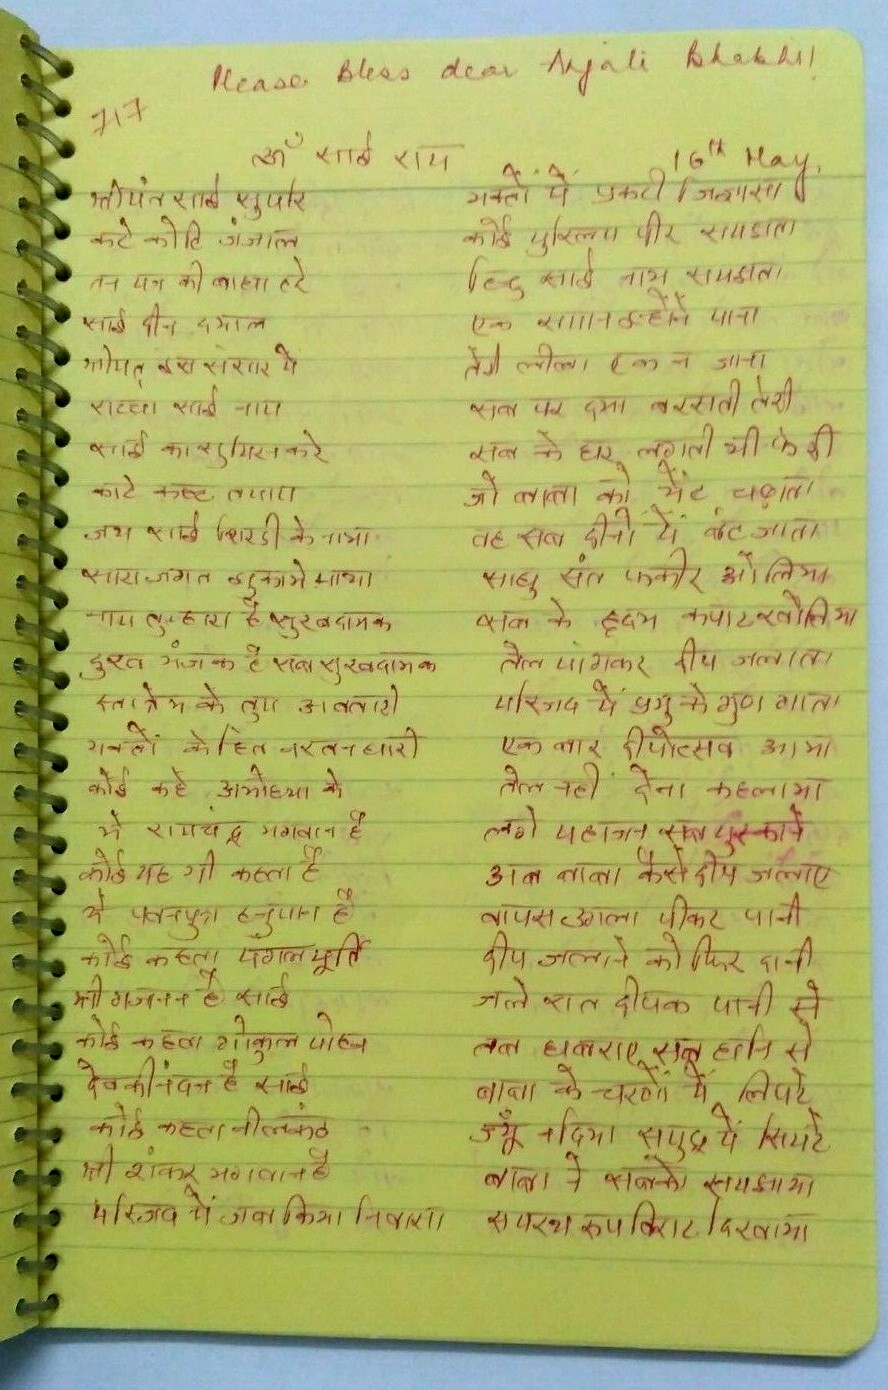 Please Bless dear Anjali Bhakshi!
717
ॐ साई राम
16th May,
श्रीपंत साई सुमरि
कटे कोटि जंजाल
तन मन की बाधा हटे
साई दीन दयाल
श्रीपत् इस संसार में
सच्चा साई नाम
साई का सुमिरन करे
काटे कष्ट तमाम
जय साई शिरडी के नाथा
सारा जगत झुकाये माथा
नाम तुम्हारा है सुखदायक
दुख भंजक है सब सुखदायक
के तुम अवतारी
भक्तों के हित नरतन धारी
कोई कहे अयोध्या के
ये रामचंद्र भगवान है
कोई यह भी कहता है
ये पवनपुत्र हनुमान है
कोई कहता मंगलमूर्ति
श्री गजानन है साई
कोई कहता गोकुल मोहन
देवकीनंदन है साई
कोई कहता नीलकंठ
श्री शंकर भगवान है
मस्जिद में जब किया निवासा
भक्तों में प्रकटी जिज्ञासा
कोई मुस्लिम पीर समझता
हिन्दु साई नाम समझता
एक समान उन्होंने माना
तेरी लीला एक न जाना
सब पर दया बरसती तेरी
सब के घर लगती थी फेरी
जो बाबा को भेंट चढ़ाता
वह सब दीनों में बंट जाता
साधु संत फकीर औलिया
सब के हृदय कपाट खोलिया
तेल मांगकर दीप जलाता
मस्जिद में प्रभु के गुण गाता
एक बार दीपोत्सव आया
तेल नहीं देना कहलाया
लगे महाजन सब मुस्काने
अब बाबा कैसे दीप जलाए
वापस उगला पीकर पानी
दीप जलाने को फिर दानी
जले रात दीपक पानी से
तब घबराए सब हानि से
बाबा के चरणों में लिपटे
ज्यूँ नदिया समुद्र में सिमटे
बाबा ने सबको समझाया
समरथ रूप विराट दिखाया